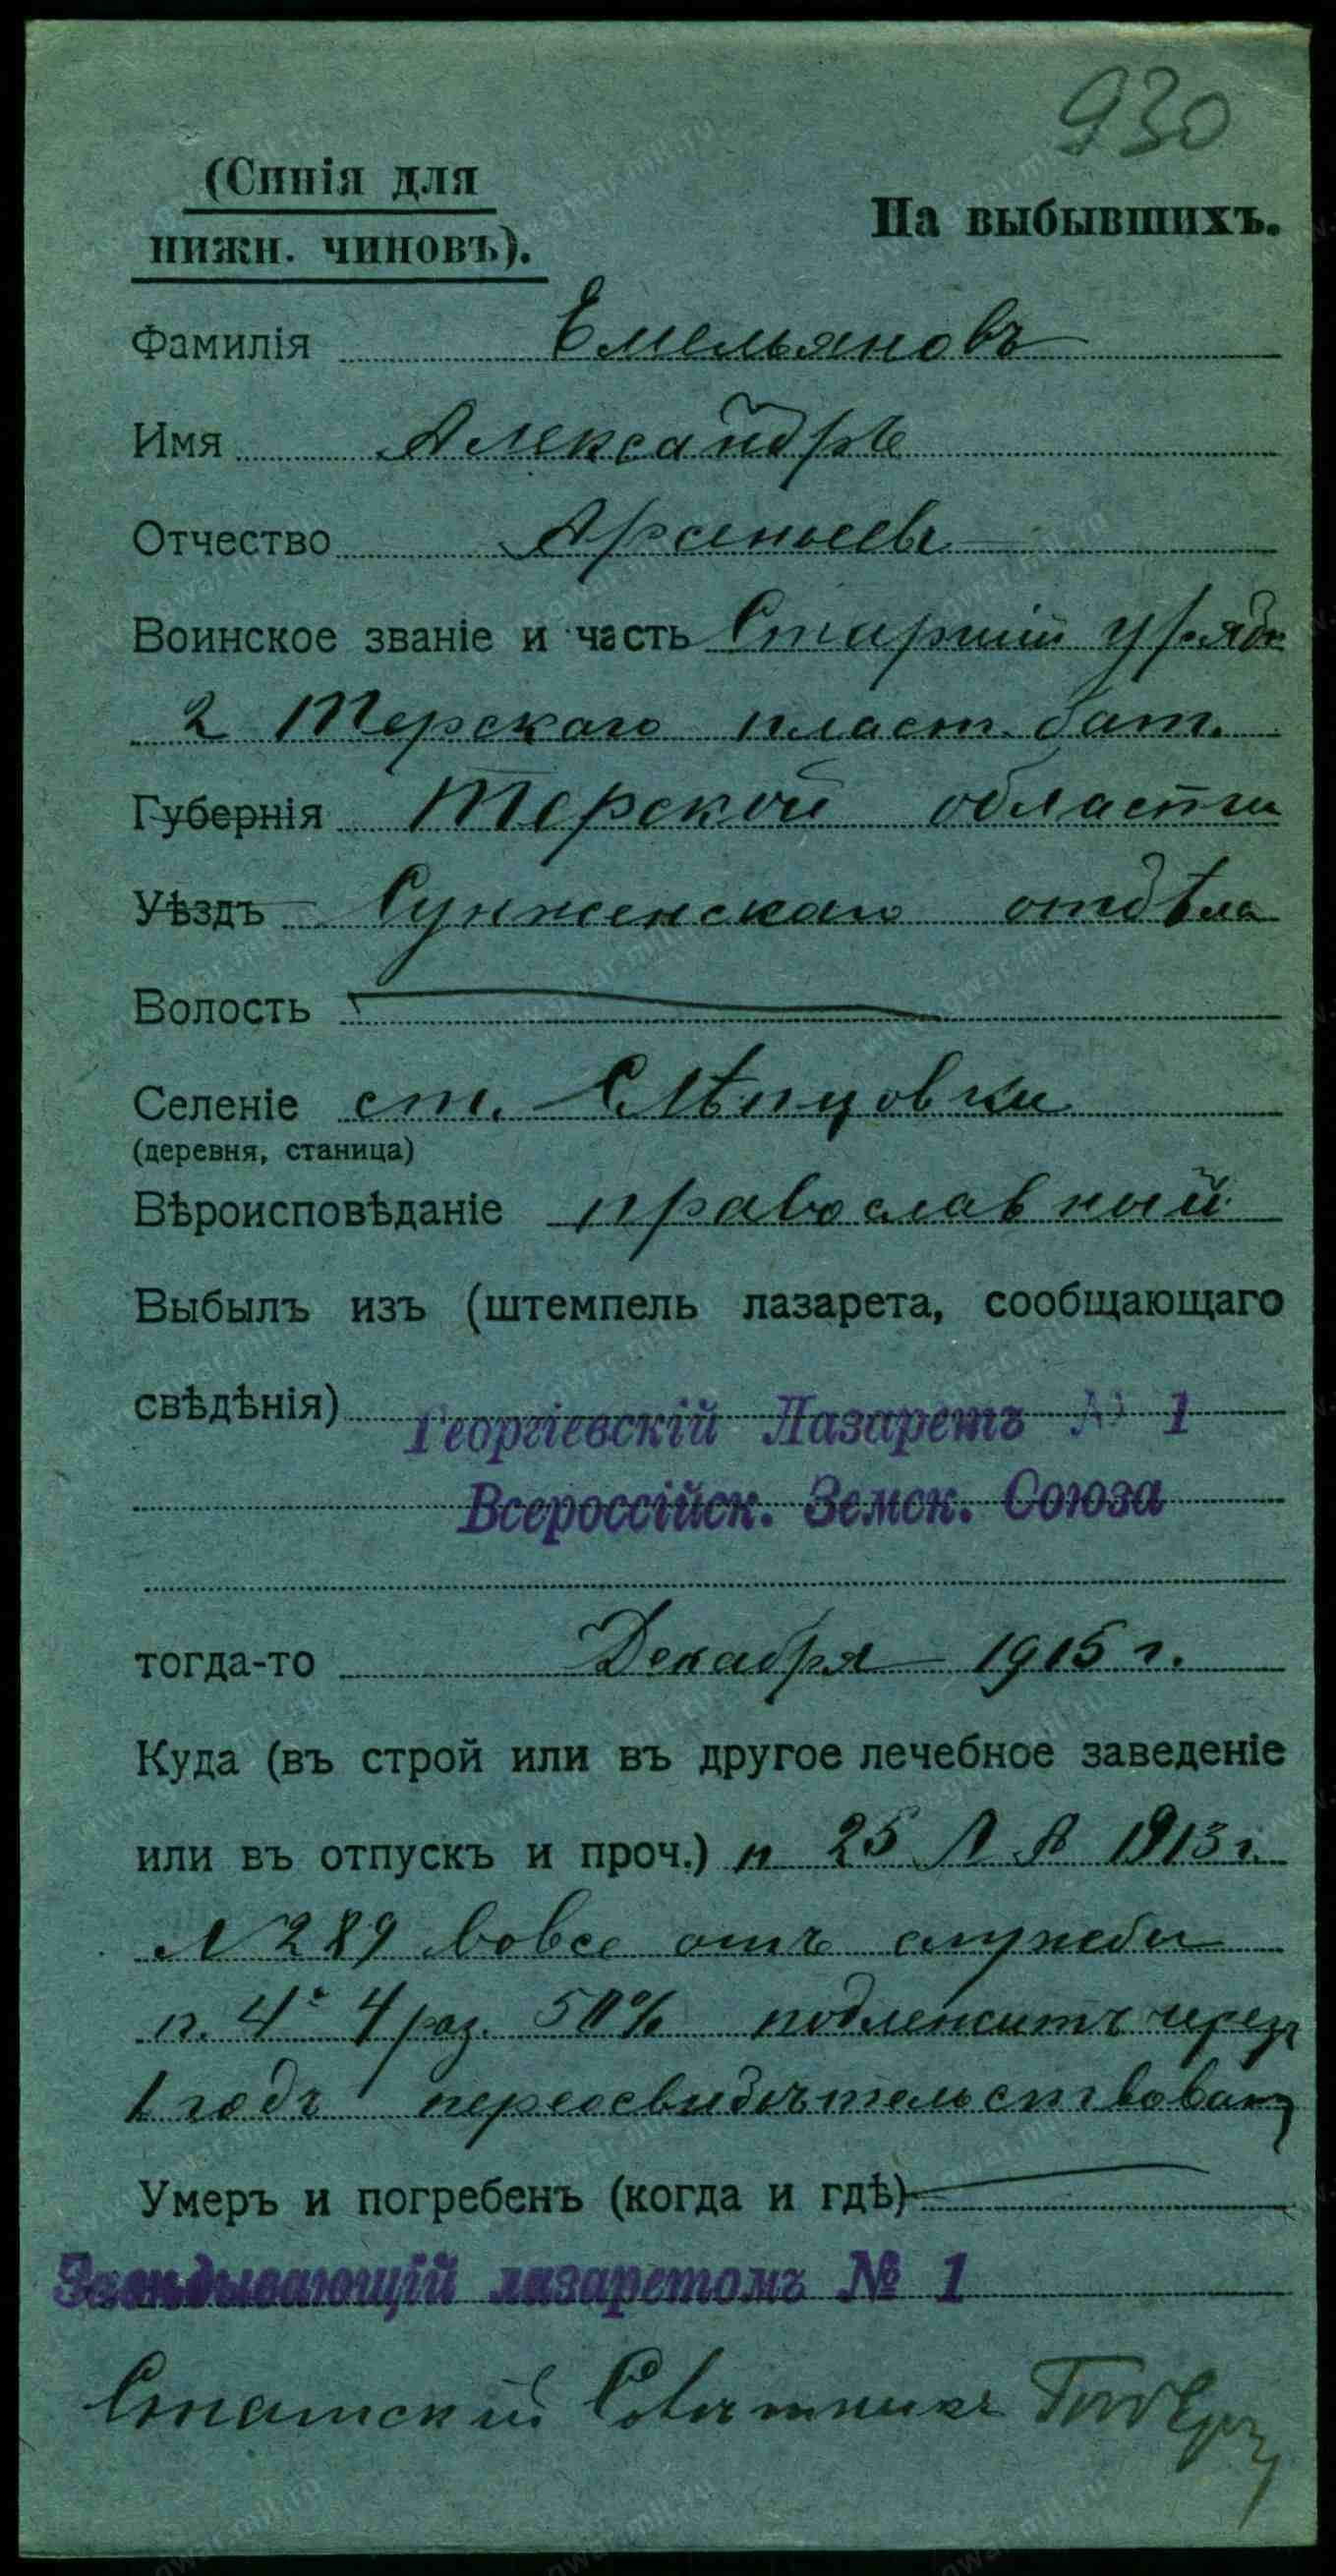 930
(Синія для
нижн. чиновъ).
На выбывшихъ.
Фамилія Емельяновъ
Имя Александръ
Отчество Арсеньевъ
Воинское званіе и часть Старшій уряд.
2 Терскаго пласт. бат.
Губернія Терской области
Уѣздъ Сунженскаго отдѣла
Волость
Селеніе ст. Слѣпцовки
(деревня, станица)
Вѣроисповѣданіе православный
Выбылъ изъ (штемпель лазарета, сообщающаго
свѣдѣнія)
Георгіевскій Лазаретъ № 1
Всероссійск. Земск. Союза
тогда-то Декабря 1915 г.
Куда (въ строй или въ другое лечебное заведеніе
или въ отпускъ и проч.) 25 1915 г.
№ 289 вовсе отъ службы
п. 4 раз. 50% подлежитъ черезъ
1 годъ переосвидѣтельствован
Умеръ и погребенъ (когда и гдѣ)
Завѣдывающій лазаретомъ № 1
Статскій Совѣтникъ